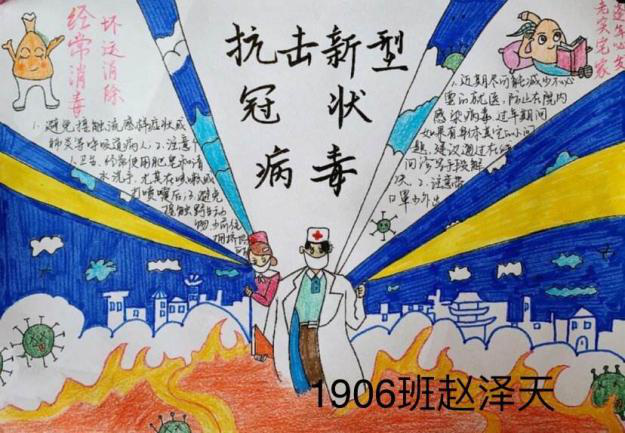 坏运消除
经常消毒
抗击新型
冠状
病毒
逢年必发
老实宅家
1、避免接触流感样症状或
肺炎等呼吸道病人,2、注意个
人卫生,经常使用肥皂和清
水洗手,尤其在咳嗽或
打喷嚏后;3、避免
接触野生动
物
1、近期尽可能减少不必
要的就医,防止在院内
感染病毒,过年期间
如果有身体其它的小问
题,建议通过在线
问诊等手段解
决,2、注意带
口罩
1906班赵泽天